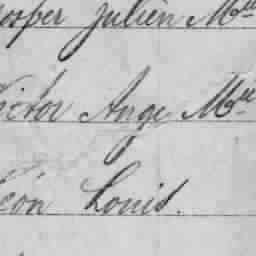 osper Julien M
ictor Ange Mie
éon Louis.